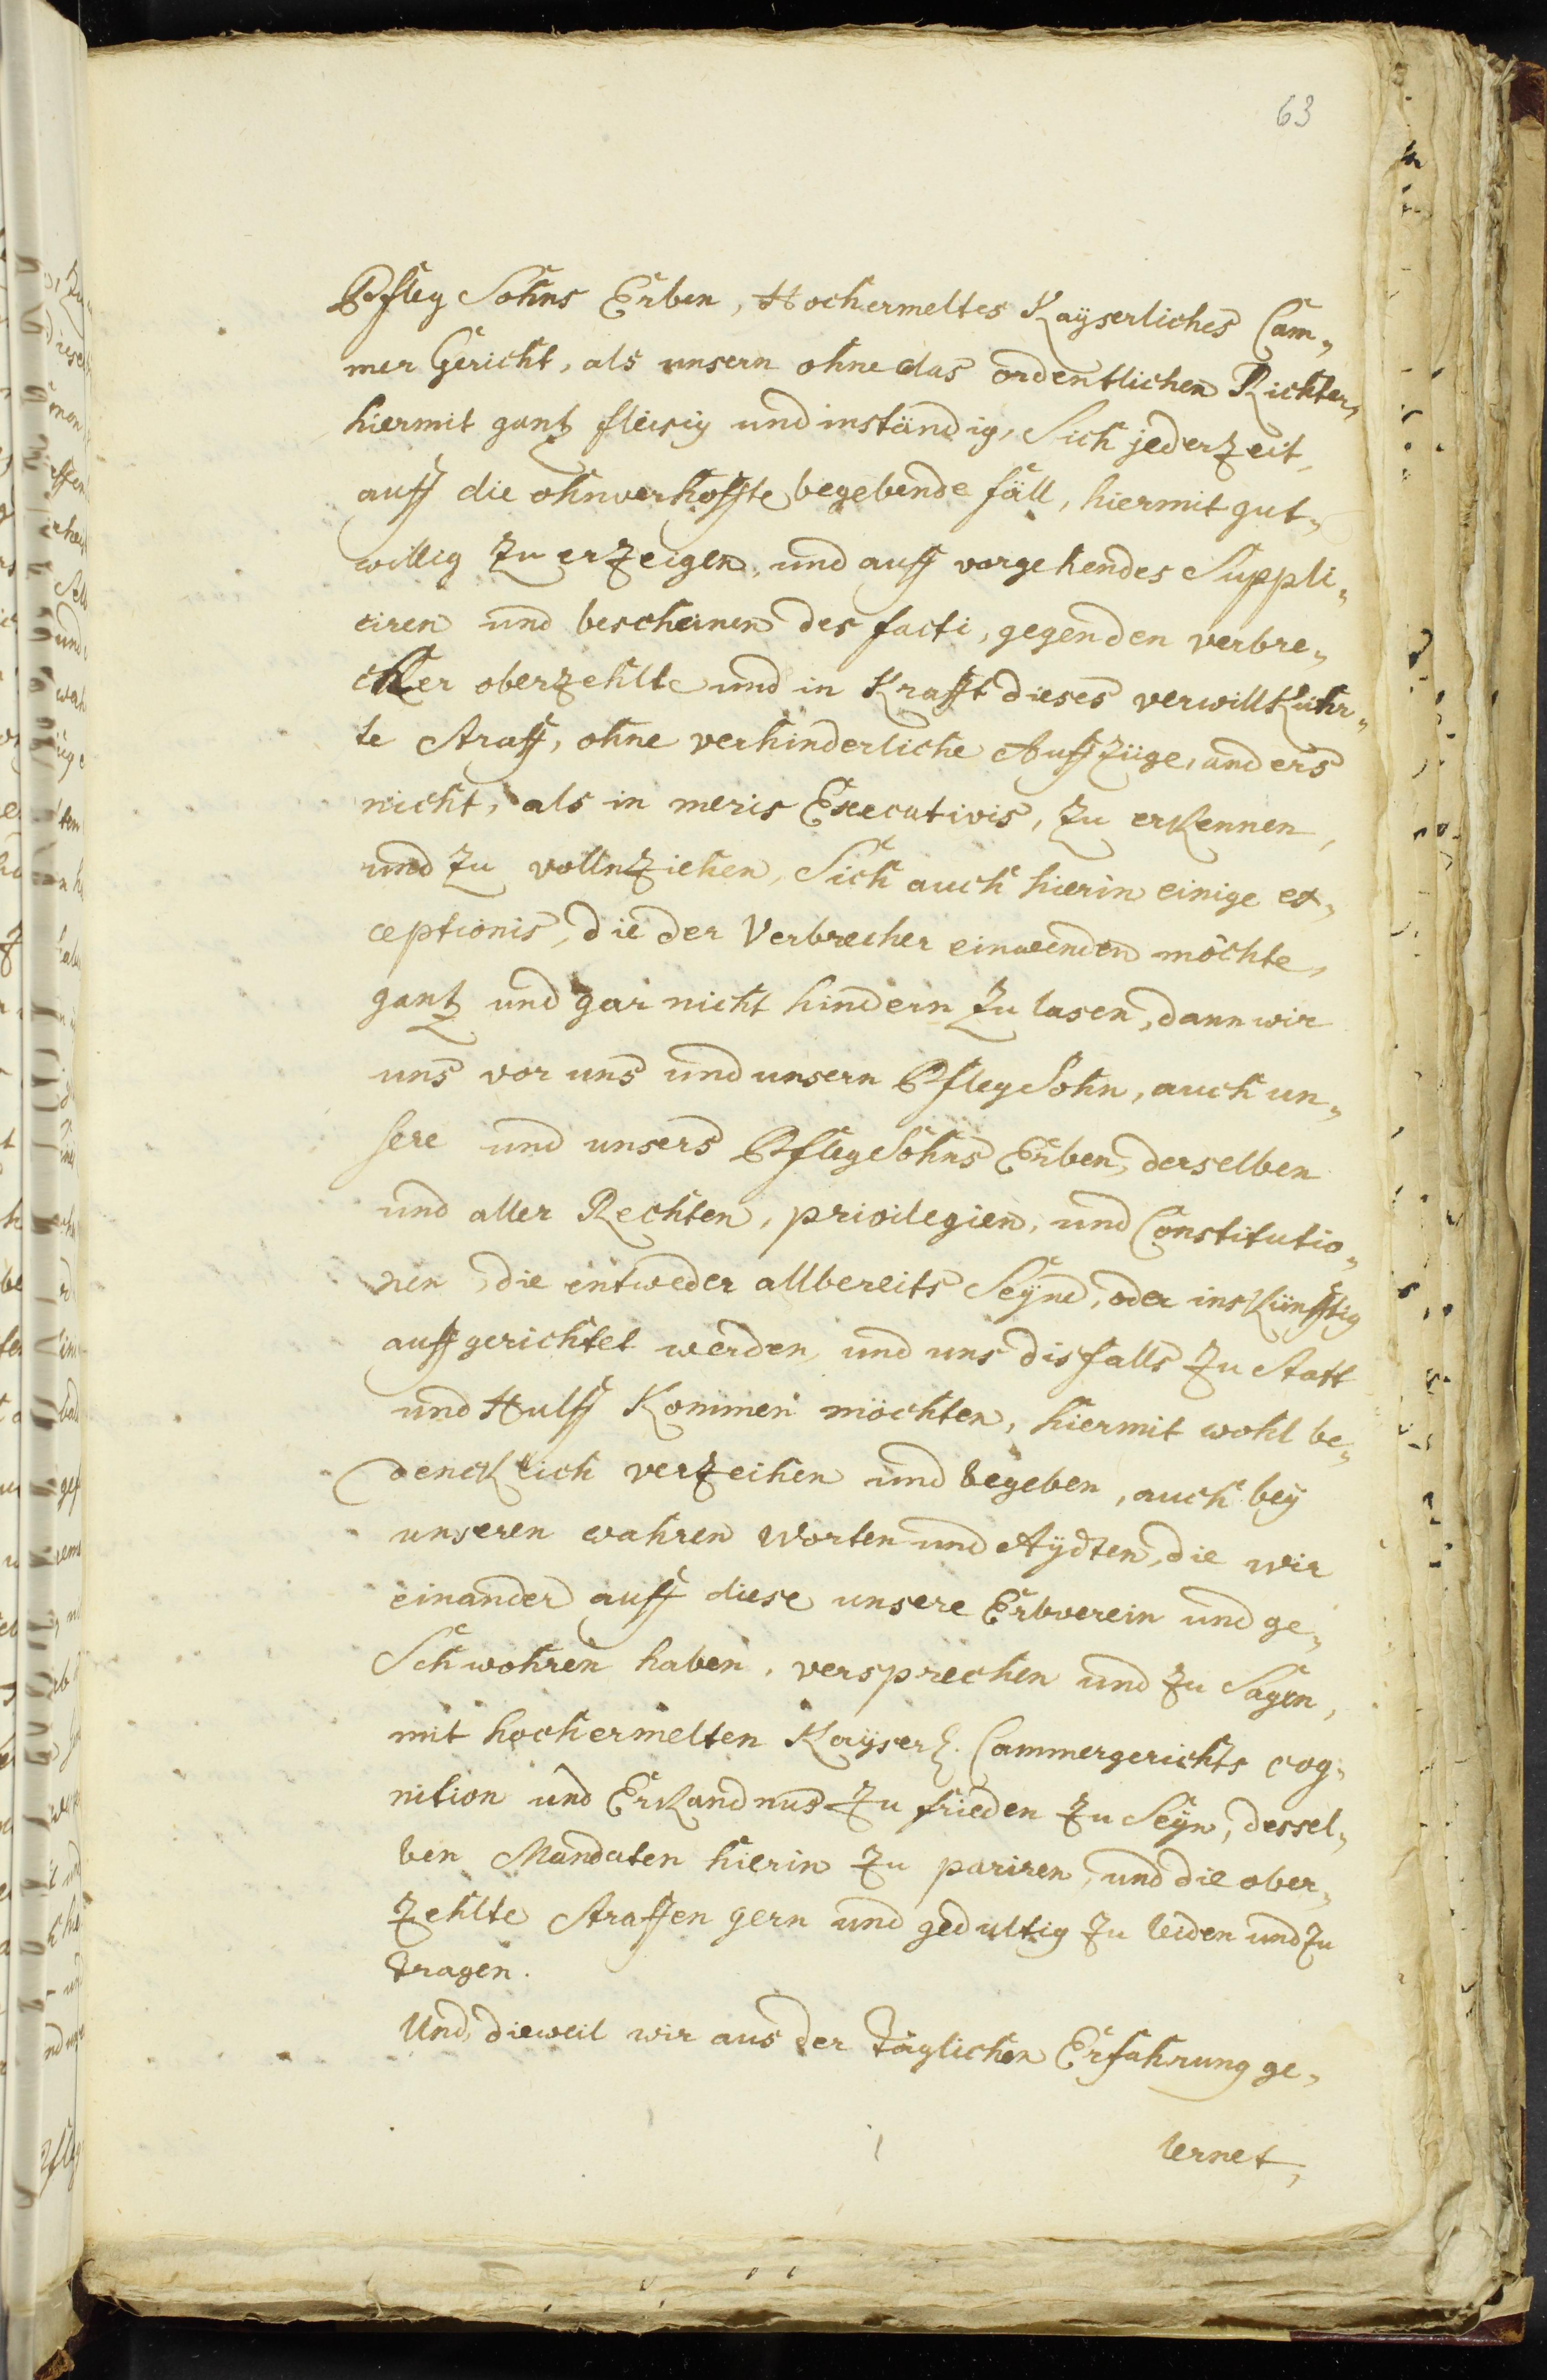 63
Pfleg Sohns Erben, Hochermeltes Kaÿserliches Cam„
mer Gericht, als unsern ohne das ordentlichen Richter„
hiermit gantz fleisig und inständig, Sich jederzeit,
auff die ohnverhoffte begebende fäll, hiermit gut„
willig zu erzeigen, und auff vorgehendes Suppli„
ciren und bescheinen des facti, gegen den verbre„
cher oberzehlte und in Krafft dieses verwillkühr„
te straff, ohne verhinderliche Auffzüge, anders
nicht, als in meris Executivis, zu erkennen,
und zu vollnziehen, Sich auch hierin einige ex„
ceptionis, die der Verbrecher einwenden möchte,
gantz und gar nicht hindern zu lasen, dann wir
uns vor uns und unsern PflegSohn, auch un„
sere und unsers PflegSohns Erben, derselben
und aller Rechten, privilegien, und Constitutio„
nen, die entweder allbereits Seÿnd, oder inskünfftig
auffgerichtet werden, und uns disfalls zu statt
und Hulff Kommen möchten, hiermit wohl be„
dencklich verzeihen und begeben, auch beÿ
unseren wahren Worten und Aÿdten, die wir
einander auff diese unsere Erbverein und ge„
Schwohren haben, versprechen und zu Sagen,
mit hochermelten Kaÿserl. Cammergerichts cog„
nition und Erkandnus zu frieden zu Seÿn, dessel„
ben Mandaten hierin zu pariren, und die ober„
zehlte straffen gern und gedultig zu leiden und zu
tragen.
Und dieweil wir aus der täglichen Erfahrung ge„
lernet,